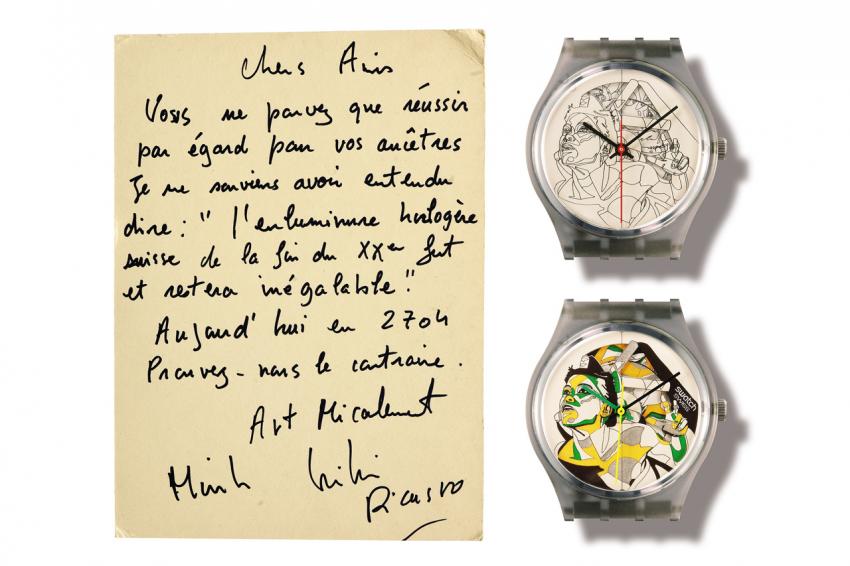 Chers Amis
Vous ne pouvez que réussir
par égard pour vos ancêtres
Je me souviens avoir entendu
dire : " l'enluminure horlogère
suisse de la fin du XXem fut
et restera inégalable".
Aujourd'hui en 2704
Prouvez-nous le contraire.
Art Micalement
Picasso
swatch
SWISS